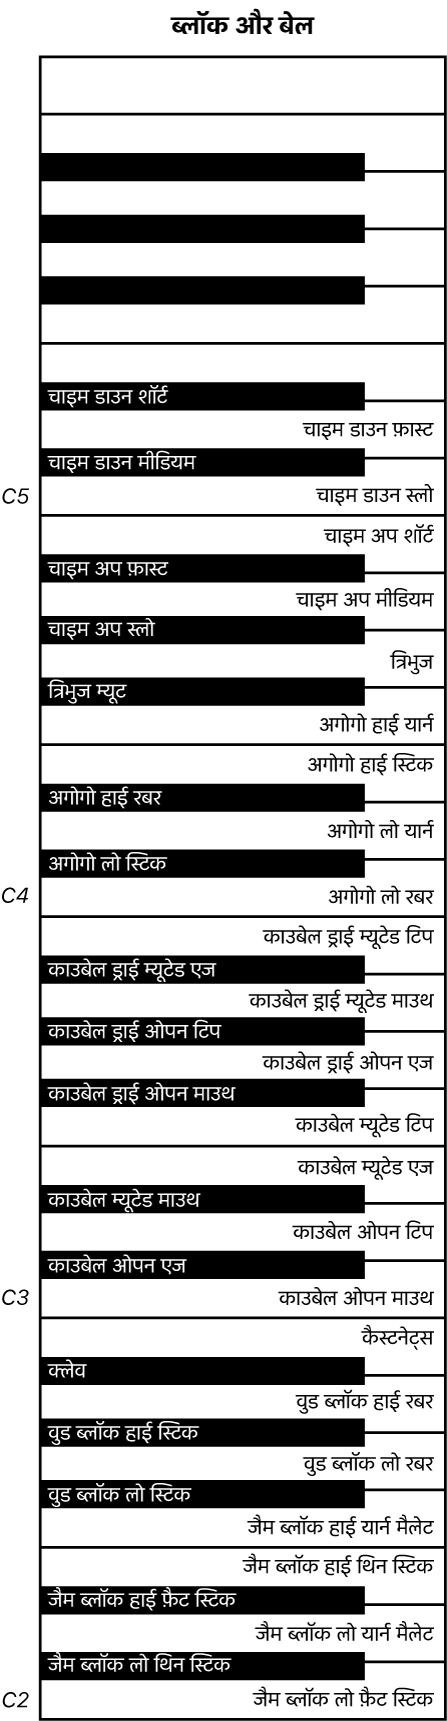 ब्लॉक और बेल
चाइम डाउन शॉर्ट
चाइम डाउन फ़ास्ट
चाइम डाउन मीडियम
C5
चाइम डाउन स्लो
चाइम अप शॉर्ट
चाइम अप फ़ास्ट
चाइम अप मीडियम
चाइम अप स्लो
त्रिभुज
त्रिभुज म्यूट
अगोगो हाई यार्न
अगोगो हाई स्टिक
अगोगो हाई रबर
अगोगो लो यार्न
अगोगो लो स्टिक
C4
अगोगो लो रबर
काउबेल ड्राई म्यूटेड टिप
काउबेल ड्राई म्यूटेड एज
काउबेल ड्राई म्यूटेड माउथ
काउबेल ड्राई ओपन टिप
काउबेल ड्राई ओपन एज
काउबेल ड्राई ओपन माउथ
काउबेल म्यूटेड टिप
काउबेल म्यूटेड एज
काउबेल म्यूटेड माउथ
काउबेल ओपन टिप
काउबेल ओपन एज
C3
काउबेल ओपन माउथ
कैस्टनेट्स
क्लेव
वुड ब्लॉक हाई रबर
वुड ब्लॉक हाई स्टिक
वुड ब्लॉक लो रबर
वुड ब्लॉक लो स्टिक
जैम ब्लॉक हाई यार्न मैलेट
जैम ब्लॉक हाई थिन स्टिक
जैम ब्लॉक हाई फ़ैट स्टिक
जैम ब्लॉक लो यार्न मैलेट
जैम ब्लॉक लो थिन स्टिक
C2
जैम ब्लॉक लो फ़ैट स्टिक